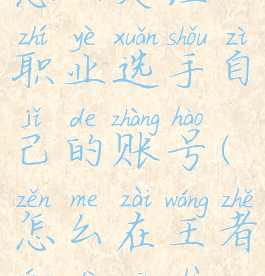 zhí yè xuǎn shǒu zì
职业选手自
jǐ de zhàng hào
己的账号(
zěn me zài wáng zhě
怎么在王者